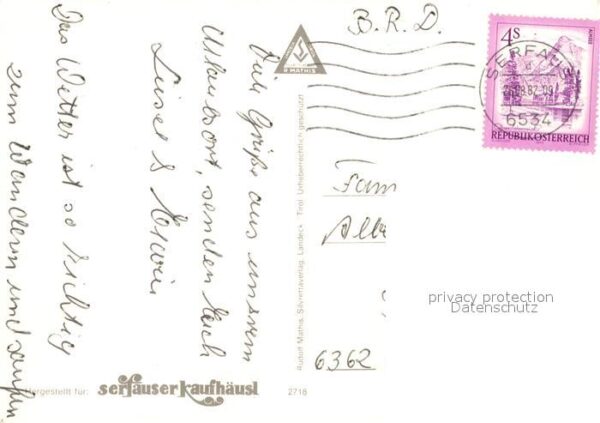 B. R. D.
4 S
ALMSEE
SERFAUS
6534
REPUBLIK ÖSTERREICH
R MATHIS
Viele Grüße aus unserem
Urlaubsort, senden Euch
Liesel &
Das Wetter ist so richtig
zum Wandern und
Fam
Alb
6362
privacy protection
Datenschutz
Rudolf Mathis, Silvrettaverlag, Landeck · Tirol Urheberrechtlich geschützt!
Hergestellt für: serfauser kaufhäusl
2718